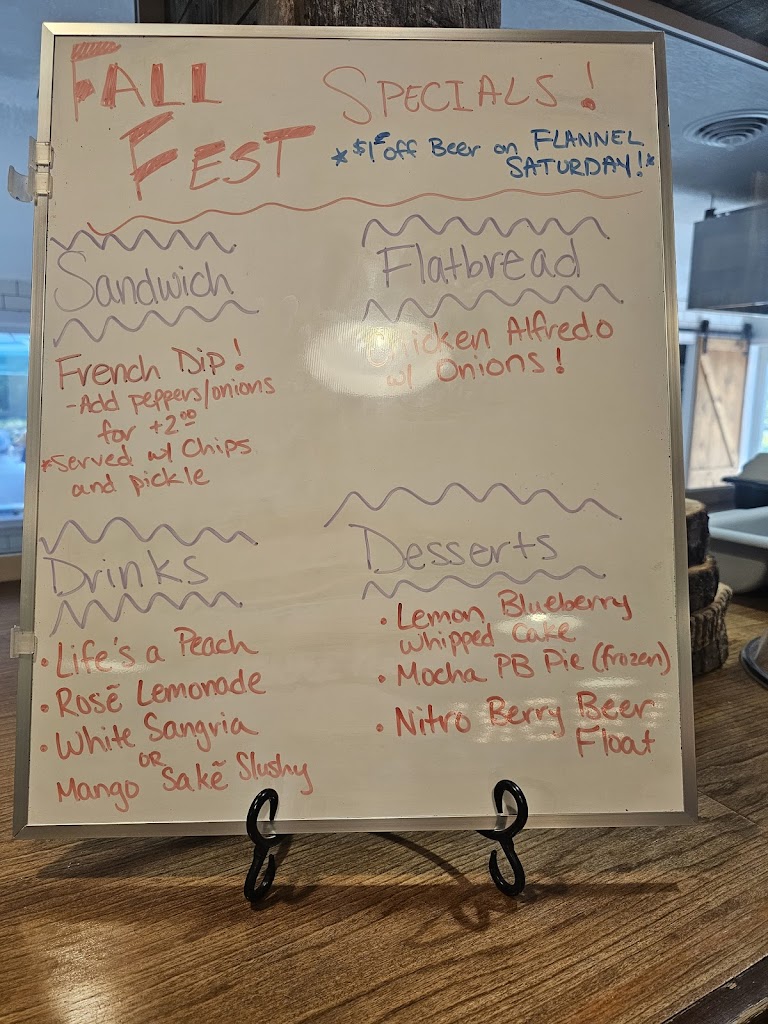 FALL FEST SPECIALS!
*$1 off Beer on FLANNEL
SATURDAY!*
Sandwich
French Dip!
-Add peppers/onions
for +2.00
*Served w/ Chips
and pickle
Flatbread
Chicken Alfredo
w/ Onions!
Drinks
• Life's a Peach
• Rosē Lemonade
• White Sangria
OR
Mango Sakē Slushy
Desserts
• Lemon Blueberry
Whipped Cake
• Mocha PB Pie (frozen)
• Nitro Berry Beer
Float